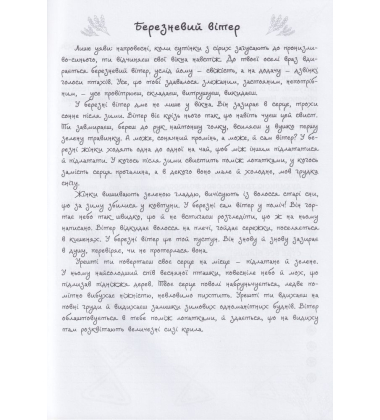 Березневий вітер
Лише уяви: напровесні, коли сутінки з сірих загусають до пронизли-
во-синього, ти відчиняєш свої вікна навстіж. До твоєї оселі враз вди-
рається березневий вітер, услід йому — свіжість, а на додачу — дзвінкі
голоси птахів. Усе, що тобі здавалося злежаним, застояним, непотріб-
ним, — усе провітрюєш, складаєш, витрушуєш, викидаєш.
У березні вітер дме не лише у вікна. Він зазирає в серце, трохи
сонне після зими. Вітер віє крізь нього так, що навіть чуєш цей свист.
Ти завмираєш, береш до рук найтоншу голку, всиляєш у вушко горду
зелену травинку. А може, сонячний промінь, а може, й сам вітер? У бе-
резні жінки ходять одна до одної на чай, щоб між іншим підлататися
й підлатати. У когось після зими свистить поміж лопатками, у когось
замість серця проталина, а в декого воно мале й холодне, мов грудка
снігу.
Жінки вишивають зеленою гладдю, вичісують із волосся старі сни,
що за зиму збилися у ковтуни. У березні сам вітер у поміч! Він гор-
тає небо так швидко, що й не встигаєш розгледіти, що ж на ньому
написано. Вітер відкидає волосся на плечі, гойдає сережки, поселяється
в кишенях. У березні вітер ще той пустун. Він знову й знову зазирає
в душу, перевіряє, чи не протерлася вона.
Урешті ти повертаєш своє серце на місце — підлатане й зелене.
У ньому найсолодший спів весняної пташки, повесніле небо й мох, що
підлизав підніжжя дерев. Твоє серце поволі набрунькується, ледве по-
мітно вибухає ніжністю, невловимо тихтить. Урешті ти вдихаєш
на повні груди й видихаєш залишки зимових одноманітних буднів. Вітер
облаштовується в тебе поміж лопатками, й здається, що на видиху
там розквітають величезні сизі крила.